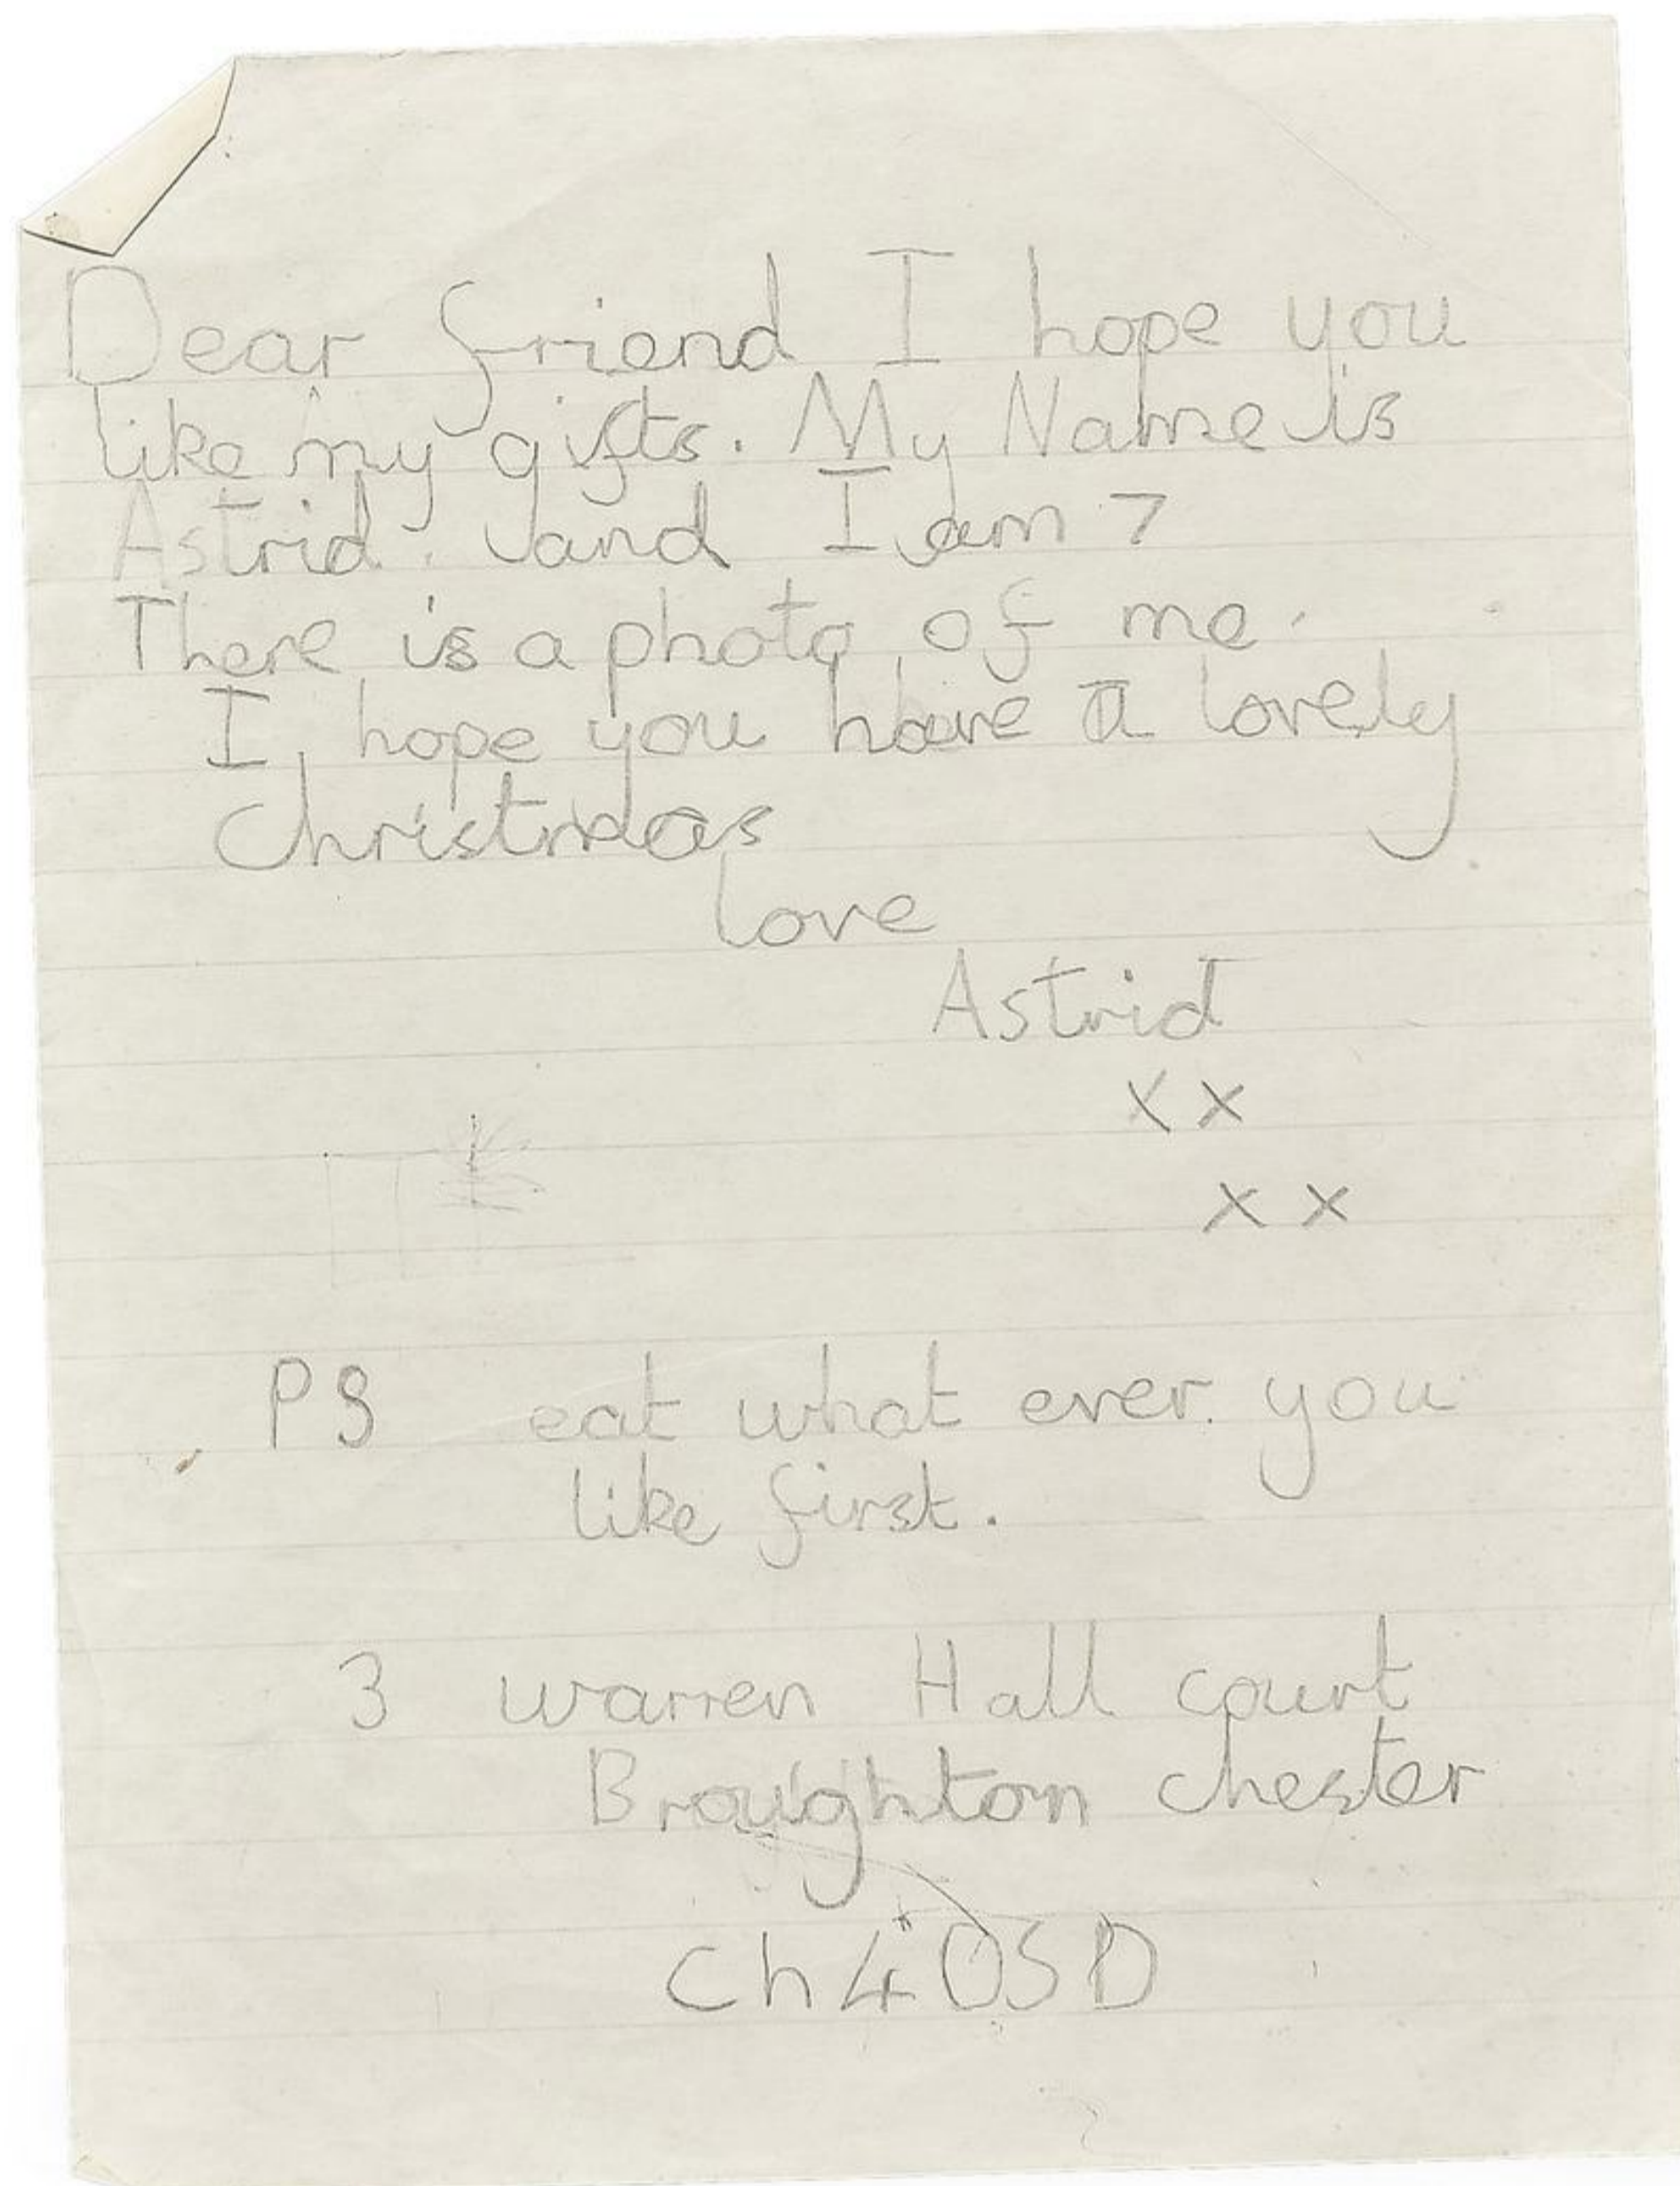 Dear friend I hope you
like my gifts. My Name is
Astrid. and I am 7
There is a photo of me.
I hope you have a lovely
christmas
love
Astrid
x x
x x
PS eat what ever you
like first.
3 warren Hall court
Broughton chester
ch4 0SD